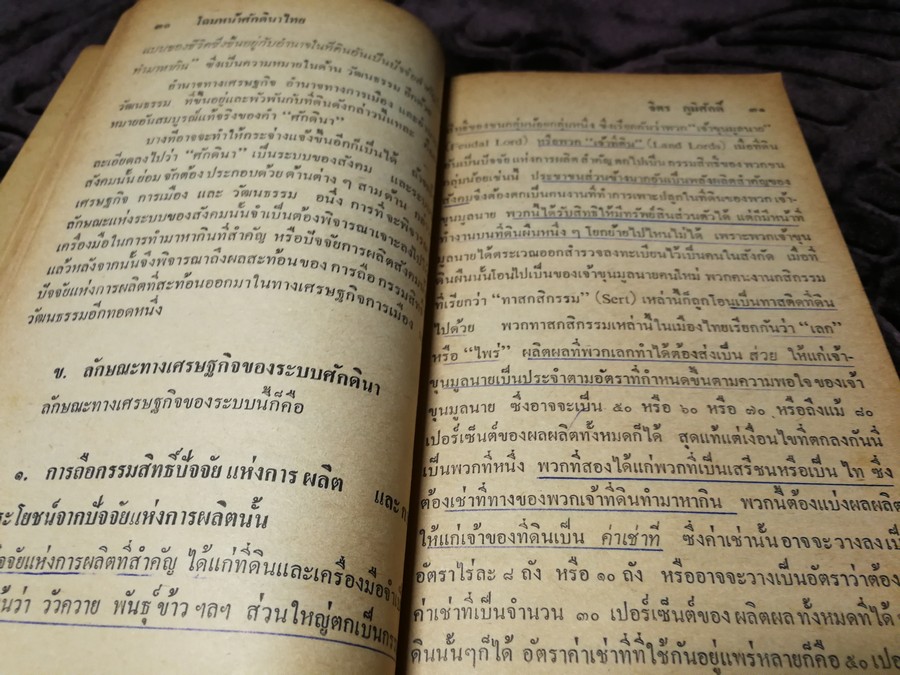 ๓๐ โฉมหน้าศักดินาไทย
แบบของชีวิตซึ่งขึ้นอยู่กับอำนาจในที่ดินอันเป็นปัจจัย
ทำมาหากิน” ซึ่งเป็นความหมายในด้าน วัฒนธรรม
อำนาจทางเศรษฐกิจ อำนาจทางการเมือง และ
วัฒนธรรม ที่ขึ้นอยู่และพัวพันกับที่ดินดังกล่าวนี้แหละ
หมายอันสมบูรณ์แท้จริงของคำ “ศักดินา”
บางทีอาจจะทำให้กระจ่างแจ้งขึ้นอีกก็เป็นได้
ละเอียดลงไปว่า “ศักดินา” เป็นระบบของสังคม และ
สังคมนั้นย่อมจักต้องประกอบด้วยด้านต่าง ๆ สามด้าน
เศรษฐกิจ การเมือง และ วัฒนธรรม อนึ่ง การที่จะ
ลักษณะแห่งระบบของสังคมนั้นจำเป็นต้องพิจารณาเจาะลงไป
เครื่องมือในการทำมาหากินที่สำคัญ หรือปัจจัยการผลิต
แล้วหลังจากนั้นจึงพิจารณาถึงผลสะท้อนของ การถือกรรมสิทธิ์
ปัจจัยแห่งการผลิตที่สะท้อนออกมาในทางเศรษฐกิจการเมือง
วัฒนธรรมอีกทอดหนึ่ง
ข. ลักษณะทางเศรษฐกิจของระบบศักดินา
ลักษณะทางเศรษฐกิจของระบบนี้ก็คือ
๑. การถือกรรมสิทธิ์ปัจจัย แห่งการ ผลิต และ
ประโยชน์จากปัจจัยแห่งการผลิตนั้น
ปัจจัยแห่งการผลิตที่สำคัญ ได้แก่ที่ดินและเครื่องมือ
ว่า วัวควาย พันธุ์ข้าว ฯลฯ ส่วนใหญ่ตกเป็น
จิตร ภูมิศักดิ์ ๓๑
ของชนกลุ่มน้อยกลุ่มหนึ่ง ซึ่งเรียกกันว่าพวก “เจ้าขุนมูลนาย”
(Feudal Lord) หรือพวก “เจ้าที่ดิน” (Land Lords) เมื่อที่ดิน
อันเป็นปัจจัย แห่งการผลิต สำคัญ ตกไปเป็นกรรมสิทธิ์ของพวกชน
กลุ่มน้อยเช่นนี้ ประชาชนส่วนข้างมากอันเป็นพลังผลิตสำคัญของ
สังคมจึงต้องตกเป็นคนงานที่ทำการเพาะปลูกในที่ดินของพวกเจ้า-
ขุนมูลนาย พวกนี้ได้รับสิทธิให้มีทรัพย์สินส่วนตัวได้ แต่ก็มีหน้าที่
ทำงานบนที่ดินผืนหนึ่ง ๆ โยกย้ายไปไหนไม่ได้ เพราะพวกเจ้าขุน
มูลนายได้ตระเวณออกสำรวจลงทะเบียนไว้เป็นคนในสังกัด เมื่อที่
ดินผืนนั้นโอนไปเป็นของเจ้าขุนมูลนายคนใหม่ พวกคนงานกสิกรรม
ที่เรียกว่า “ทาสกสิกรรม” (Serf) เหล่านี้ก็ถูกโอนเป็นทาสติดที่ดิน
ไปด้วย พวกทาสกสิกรรมเหล่านี้ในเมืองไทยเรียกกันว่า “เลก”
หรือ “ไพร่” ผลิตผลที่พวกเลกทำได้ต้องส่งเป็น ส่วย ให้แก่เจ้า-
ขุนมูลนายเป็นประจำตามอัตราที่กำหนดขึ้นตามความพอใจ ของเจ้า
ขุนมูลนาย ซึ่งอาจจะเป็น ๕๐ หรือ ๖๐ หรือ ๗๐ หรือถึงแม้ ๘๐
เปอร์เซ็นต์ของผลผลิตทั้งหมดก็ได้ สุดแท้แต่เงื่อนไขที่ตกลงกันนี่
เป็นพวกที่หนึ่ง พวกที่สองได้แก่พวกที่เป็นเสรีชนหรือเป็น ไท ซึ่ง
ต้องเช่าที่ทางของพวกเจ้าที่ดินทำมาหากิน พวกนี้ต้องแบ่งผลผลิต
ให้แก่เจ้าของที่ดินเป็น ค่าเช่าที่ ซึ่งค่าเช่านั้นอาจจะวางลงเป็น
อัตราไร่ละ ๘ ถัง หรือ ๑๐ ถัง หรืออาจจะวางเป็นอัตราว่าต้อง
ค่าเช่าที่เป็นจำนวน ๓๐ เปอร์เซ็นต์ของ ผลิตผล ทั้งหมดที่ได้
ดินนั้นๆก็ได้ อัตราค่าเช่าที่ที่ใช้กันอยู่แพร่หลายก็คือ ๕๐ เปอร์